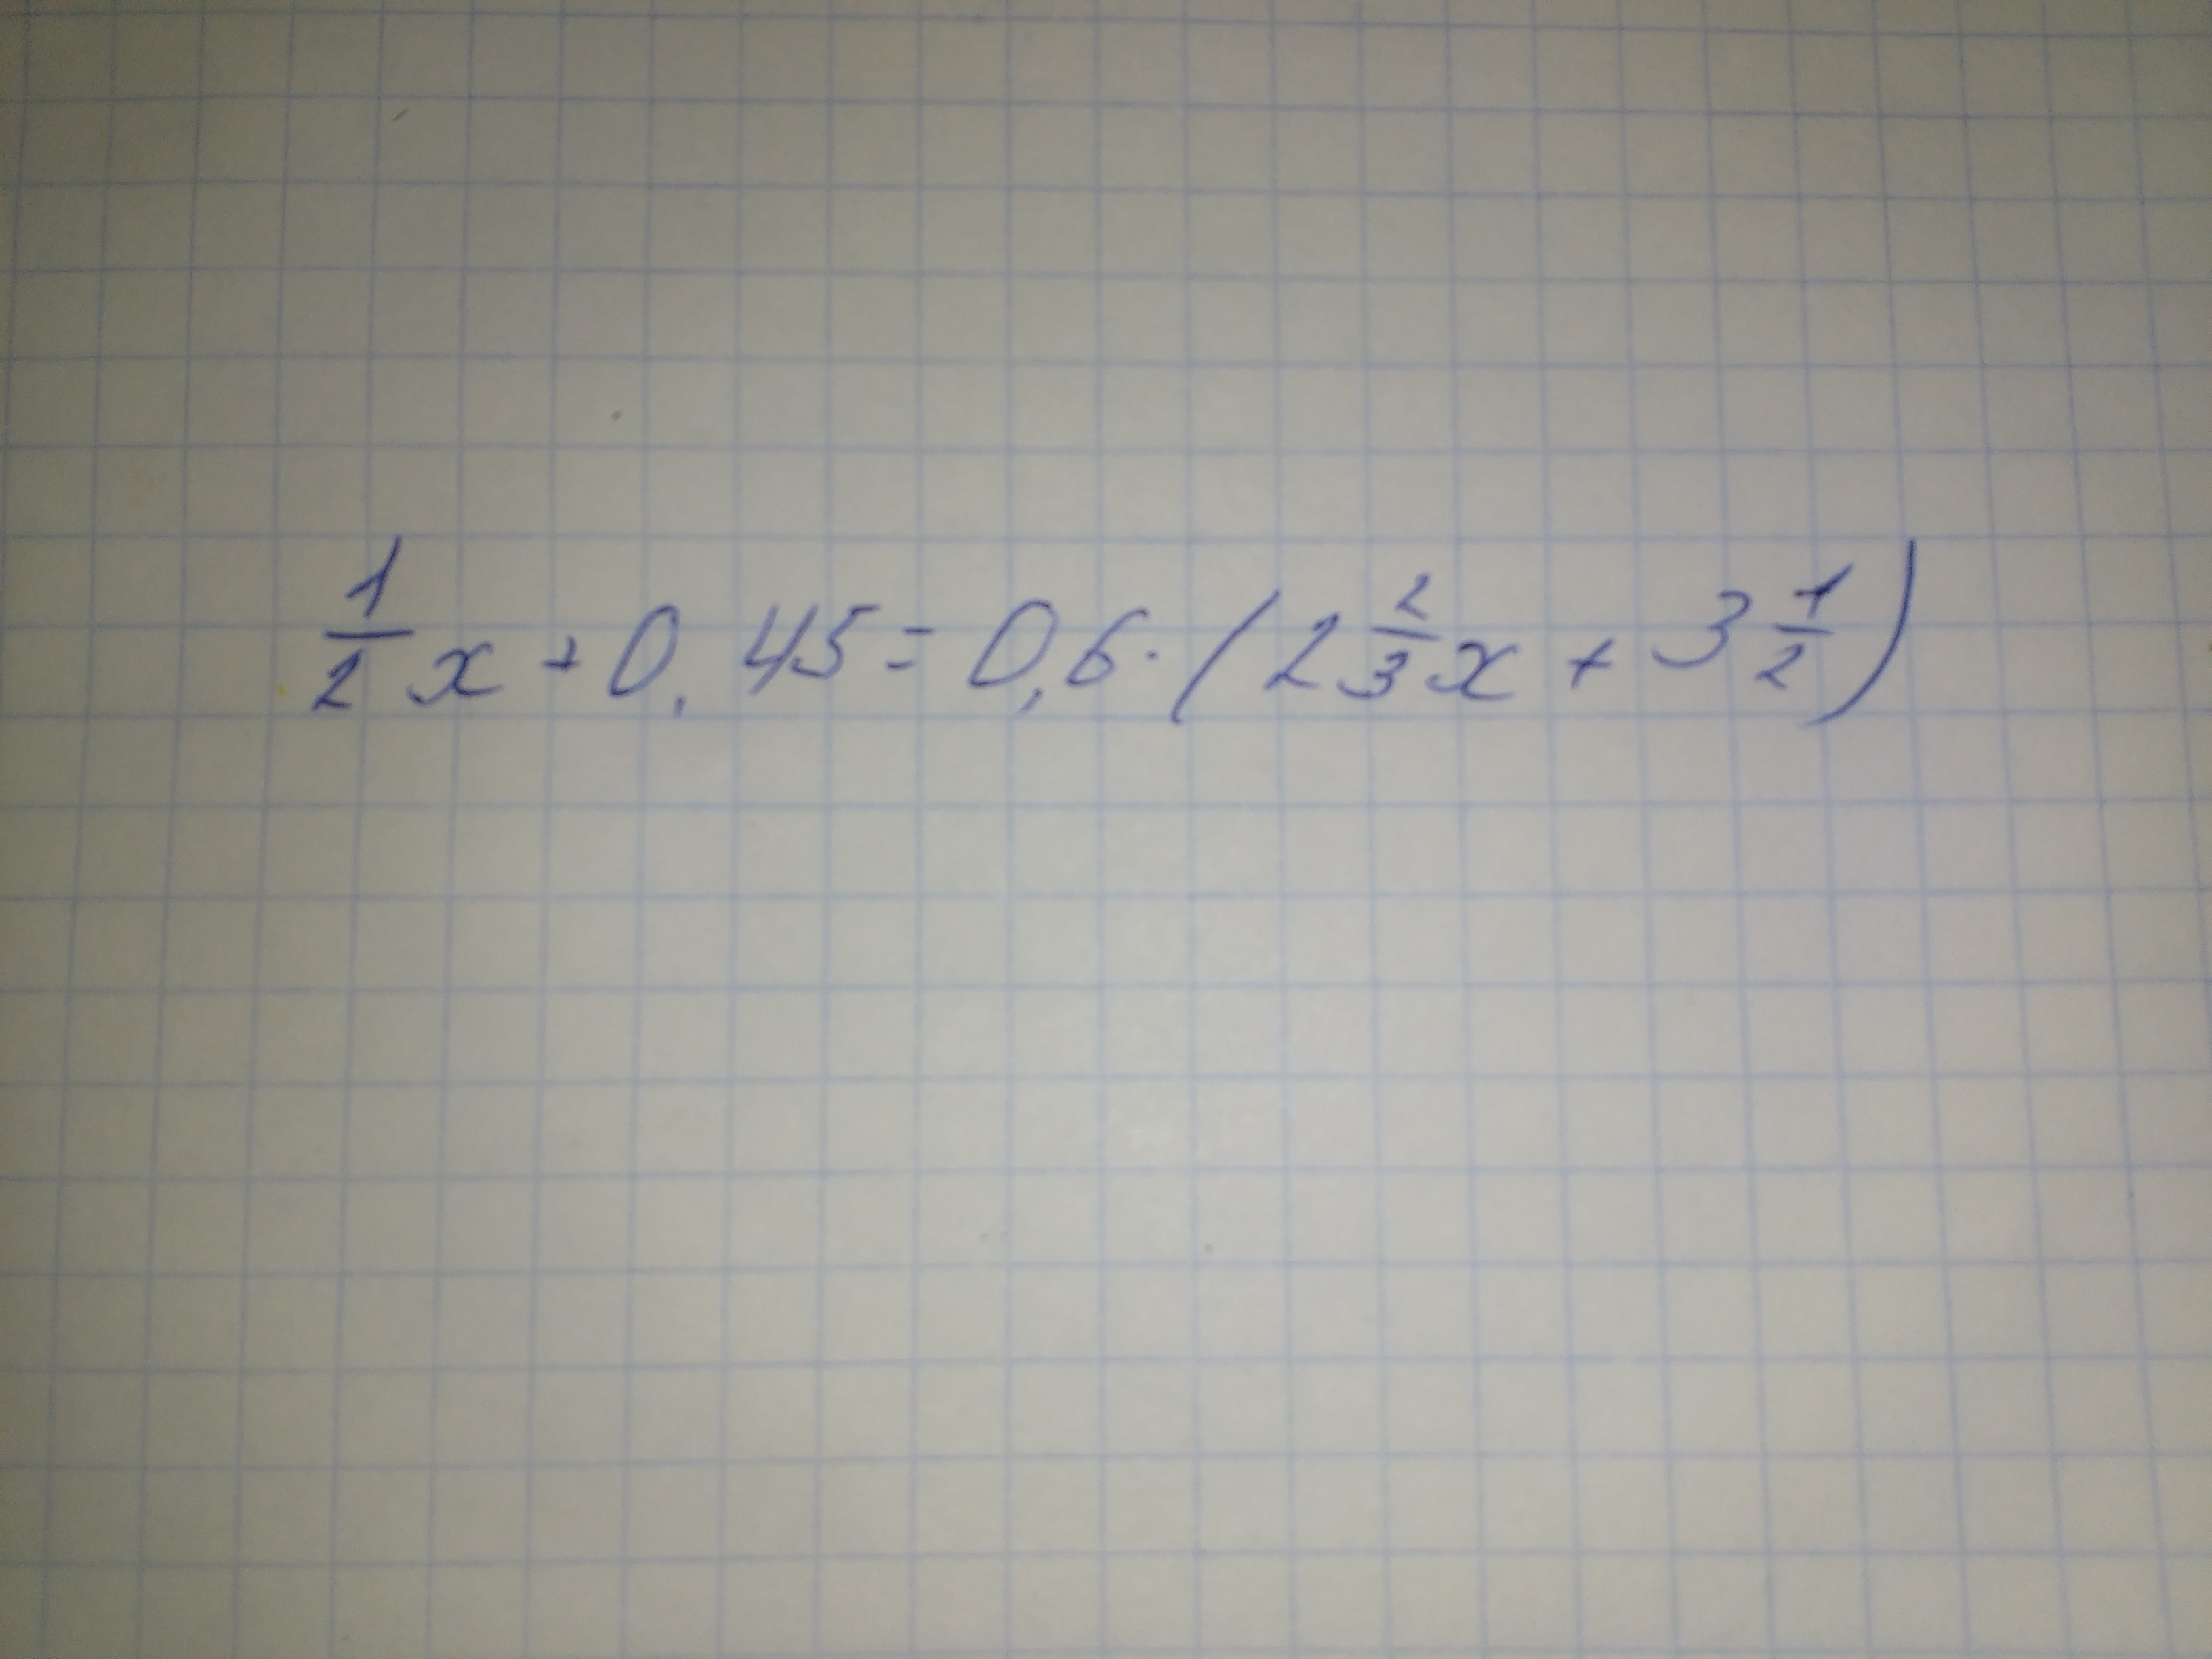 1/2 x + 0,45 = 0,6 · (2 2/3 x + 3 1/2)